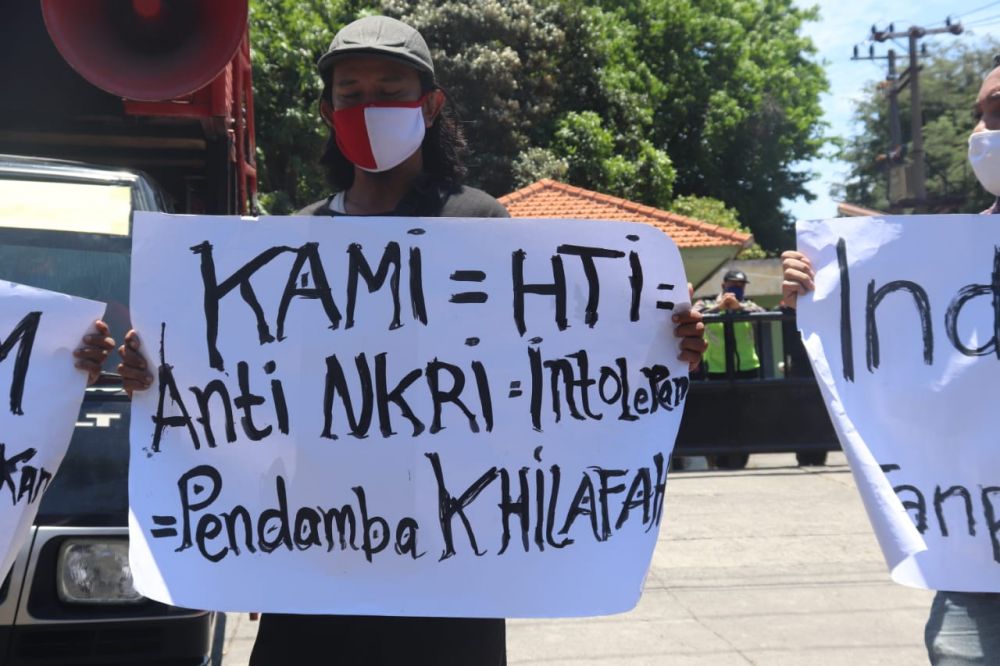 KAMi = HTi =
Anti NKRi = Intoleran
= Pendamba KHiLAFAH
M
kan
LT
Ind
Tanp